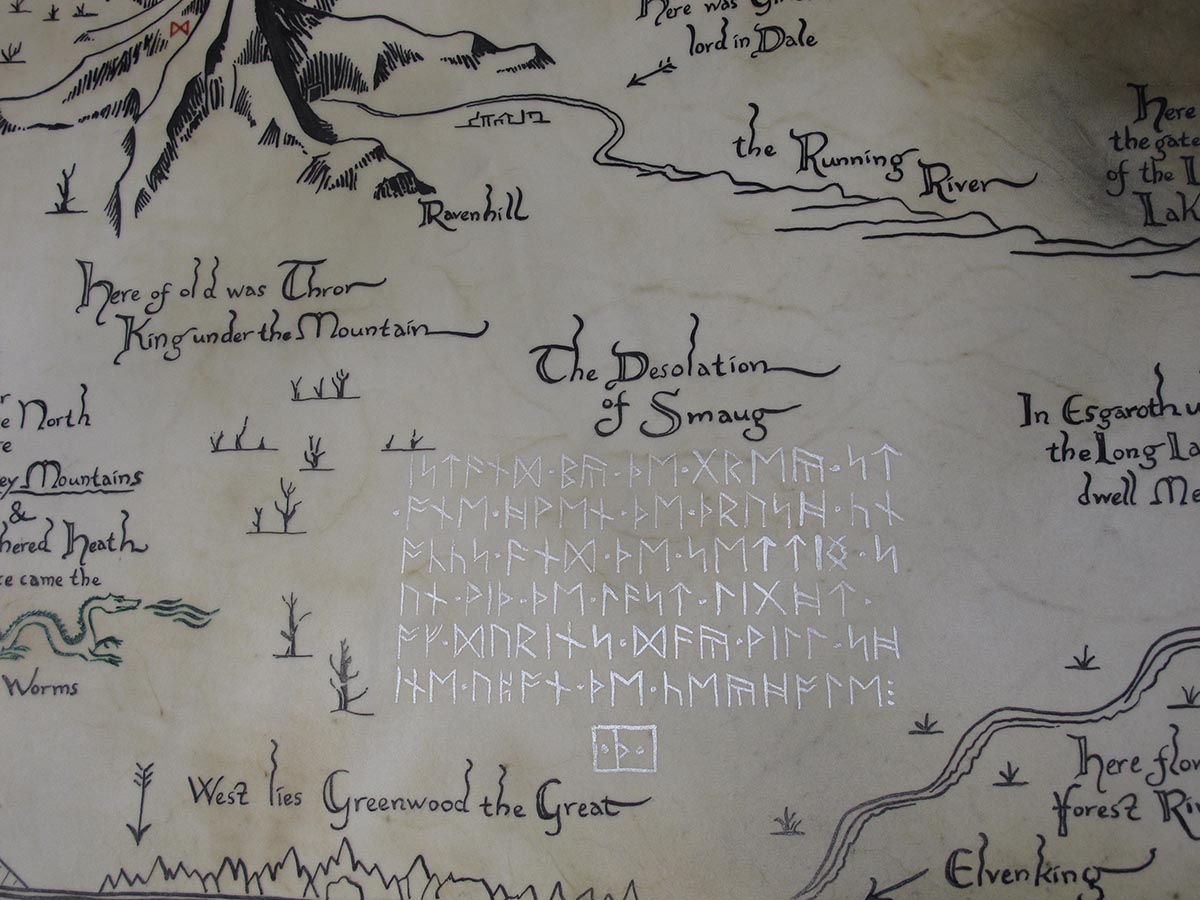 ᛞ
Here was
lord in Dale
the Running River
Here
the gate
of the
Ravenhill
Here of old was Thror
King under the Mountain
The Desolation
of Smaug
North
Mountains
&
Heath
came the
Worms
In Esgaroth
the Long
dwell
ᛁᛋᛏᚪᚾᛞ᛫ᛒᚣ᛫ᚦᛖ᛫ᚷᚱᛖᚣ᛫ᛋᛏ
᛫ᚩᚾᛖ᛫ᚻᚹᛖᚾ᛫ᚦᛖ᛫ᚦᚱᚢᛋᚻ᛫ᚳᚾ
ᚩᚳᚳᛋ᛫ᚪᚾᛞ᛫ᚦᛖ᛫ᛋᛖᛏᛏᛁᛝ᛫ᛋ
ᚢᚾ᛫ᚹᛁᚦ᛫ᚦᛖ᛫ᛚᚪᛋᛏ᛫ᛚᛁᚷᚻᛏ᛫
ᚩᚠ᛫ᛞᚢᚱᛁᚾᛋ᛫ᛞᚪᚣ᛫ᚹᛁᛚᛚ᛫ᛋᚻ
ᛁᚾᛖ᛫ᚢᛈᚩᚾ᛫ᚦᛖ᛫ᚳᛖᚣᚻᚩᛚᛖ⁝
᛫ᚦ᛫
West lies Greenwood the Great
Here
forest
Elvenking